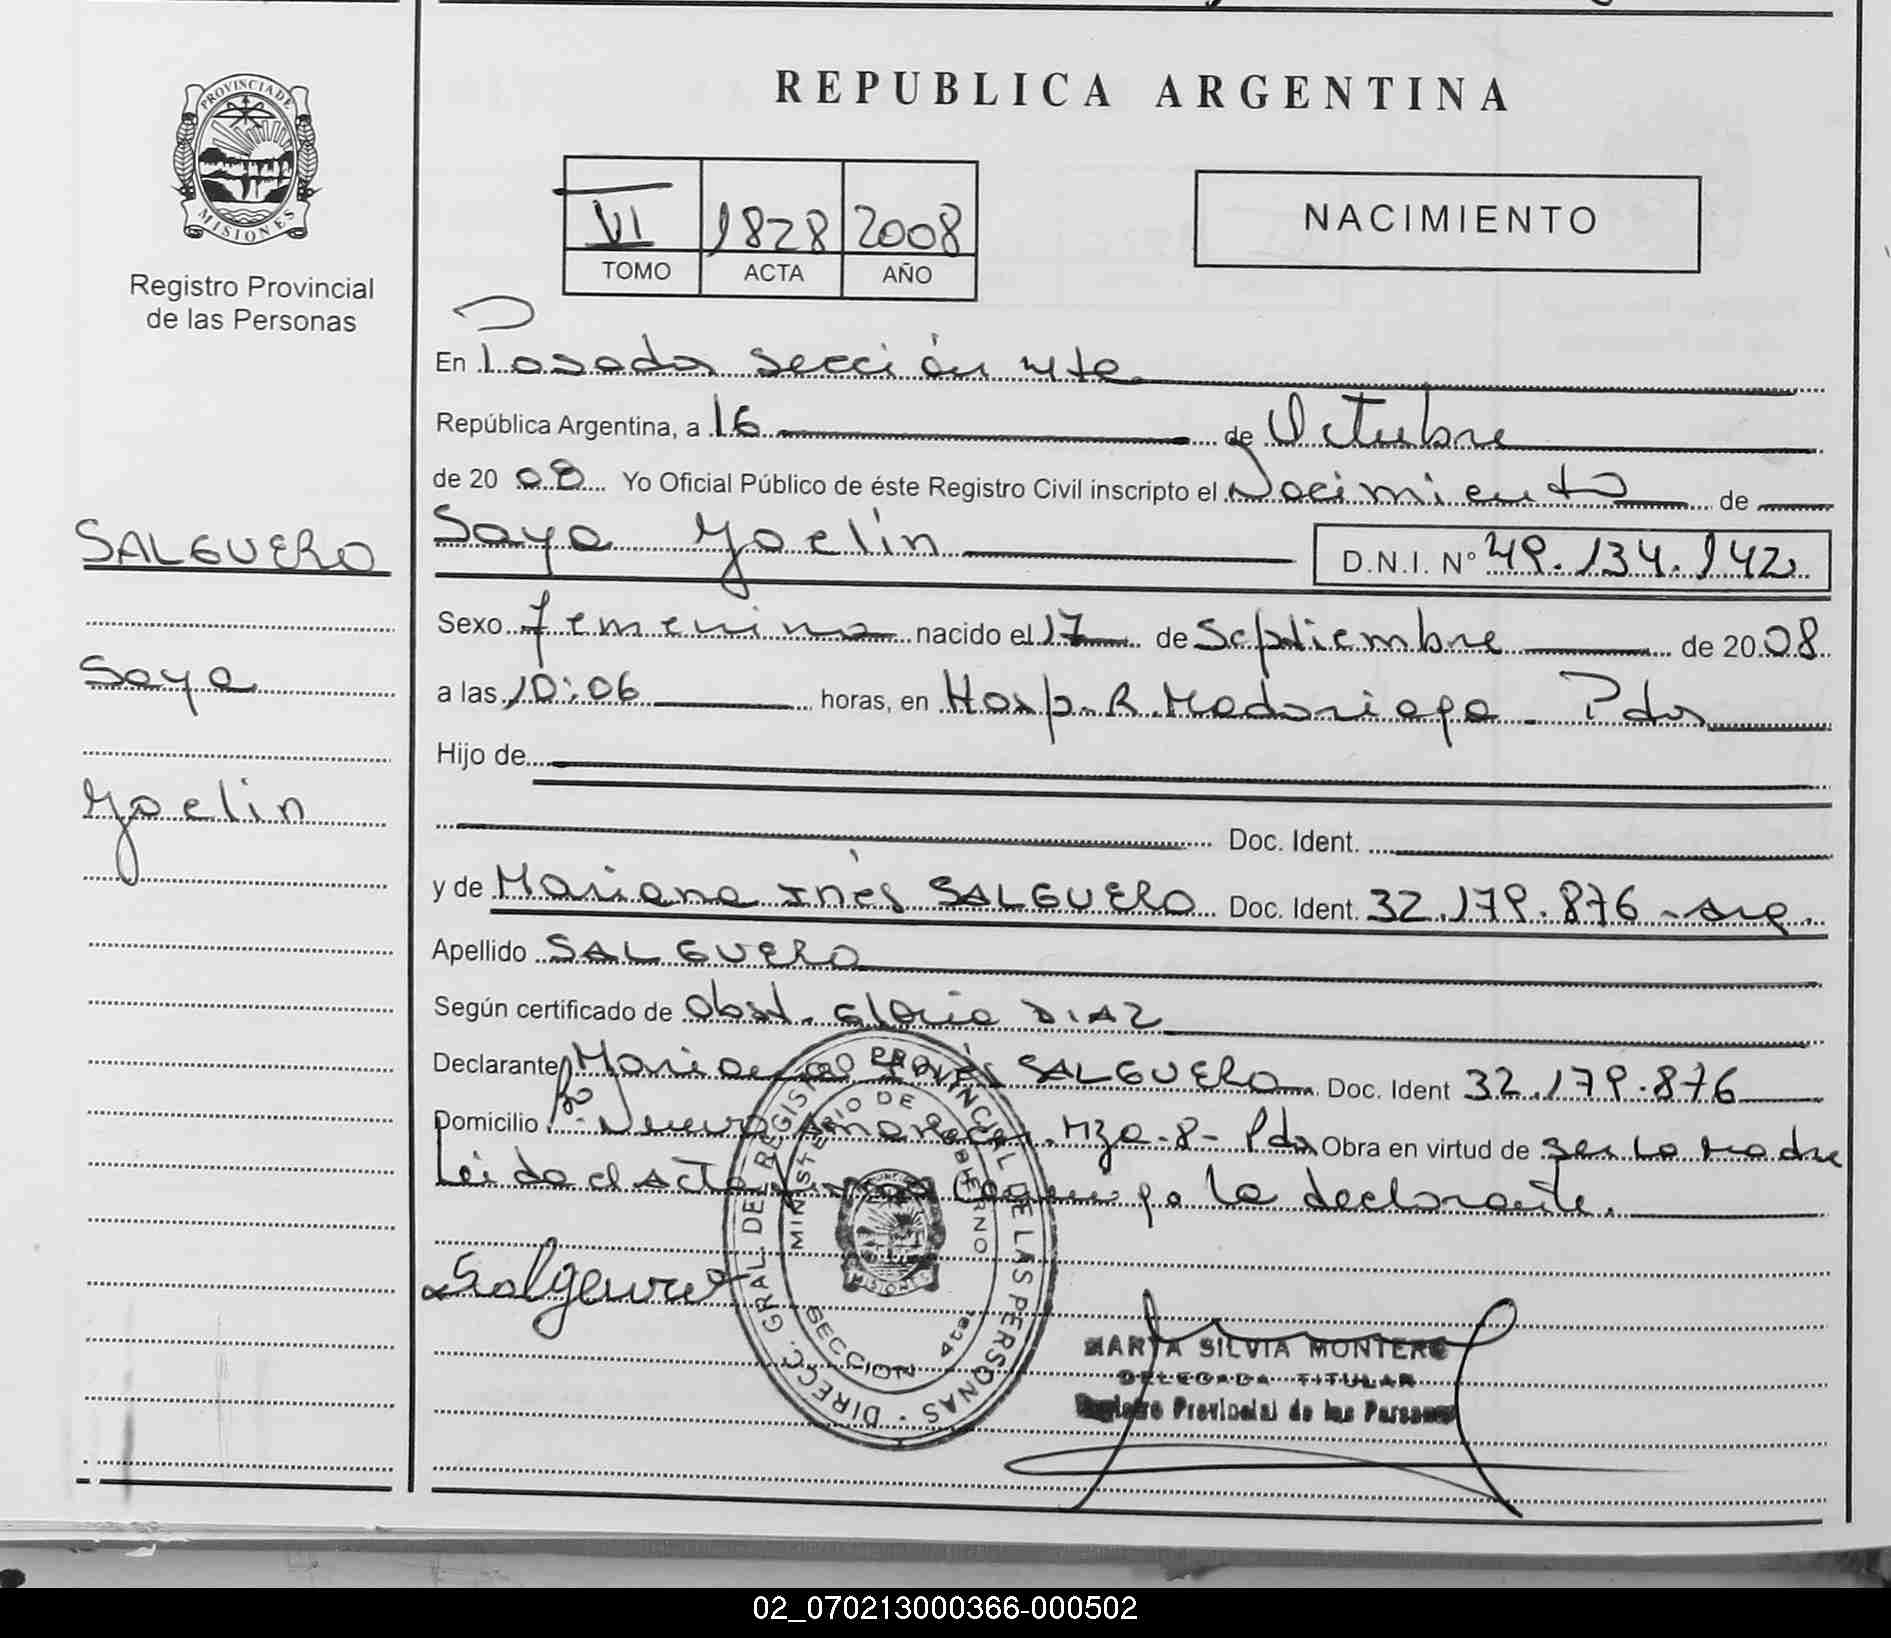 REPUBLICA ARGENTINA
PROVINCIA DE
MISIONES
Registro Provincial
de las Personas
VI 1828 2008
TOMO ACTA AÑO
NACIMIENTO
En Posadas sección 4ta.
República Argentina, a 16 de Octubre
de 20 08 Yo Oficial Público de éste Registro Civil inscripto el Nacimiento de
SALGUERO
Saya Yoelin D.N.I. N° 49.134.142
Sexo femenino nacido el 17 de Septiembre de 20 08
Saya
a las 10:06 horas, en Hosp. R. Madariaga - Pdas
Hijo de
Yoelin
Doc. Ident.
y de Mariana Inés SALGUERO Doc. Ident. 32.179.876 - arg.
Apellido SALGUERO
Según certificado de Obst. Gloria DIAZ
Declarante Mariana Inés SALGUERO Doc. Ident 32.179.876
Domicilio Bº. Nuevo Amanecer. Mza. 8 - Pdas Obra en virtud de ser la madre
Leida el acta firma conmigo la declarante.
Salguero
DIRECC. GRAL DE REGISTRO PROVINCIAL DE LAS PERSONAS
MINISTERIO DE GOBIERNO
MISIONES
SECCION 4ta.
MARTA SILVIA MONTERO
DELEGADA TITULAR
Registro Provincial de las Personas
02_070213000366-000502